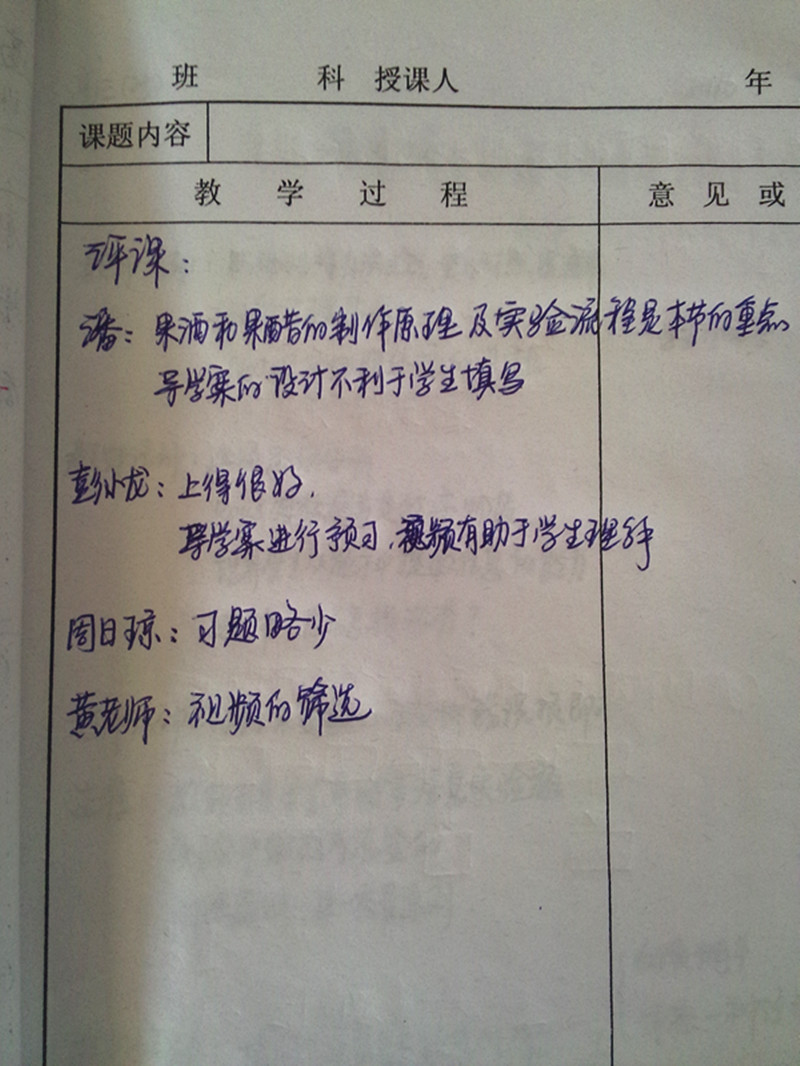 班 科 授课人 年
课题内容
教 学 过 程 意 见 或
评课：
潘：果酒和果醋的制作原理及实验流程是本节的重点
导学案的设计不利于学生填写
彭小龙：上得很好.
导学案进行预习，视频有助于学生理解
周日琼：习题略少
黄老师：视频的筛选